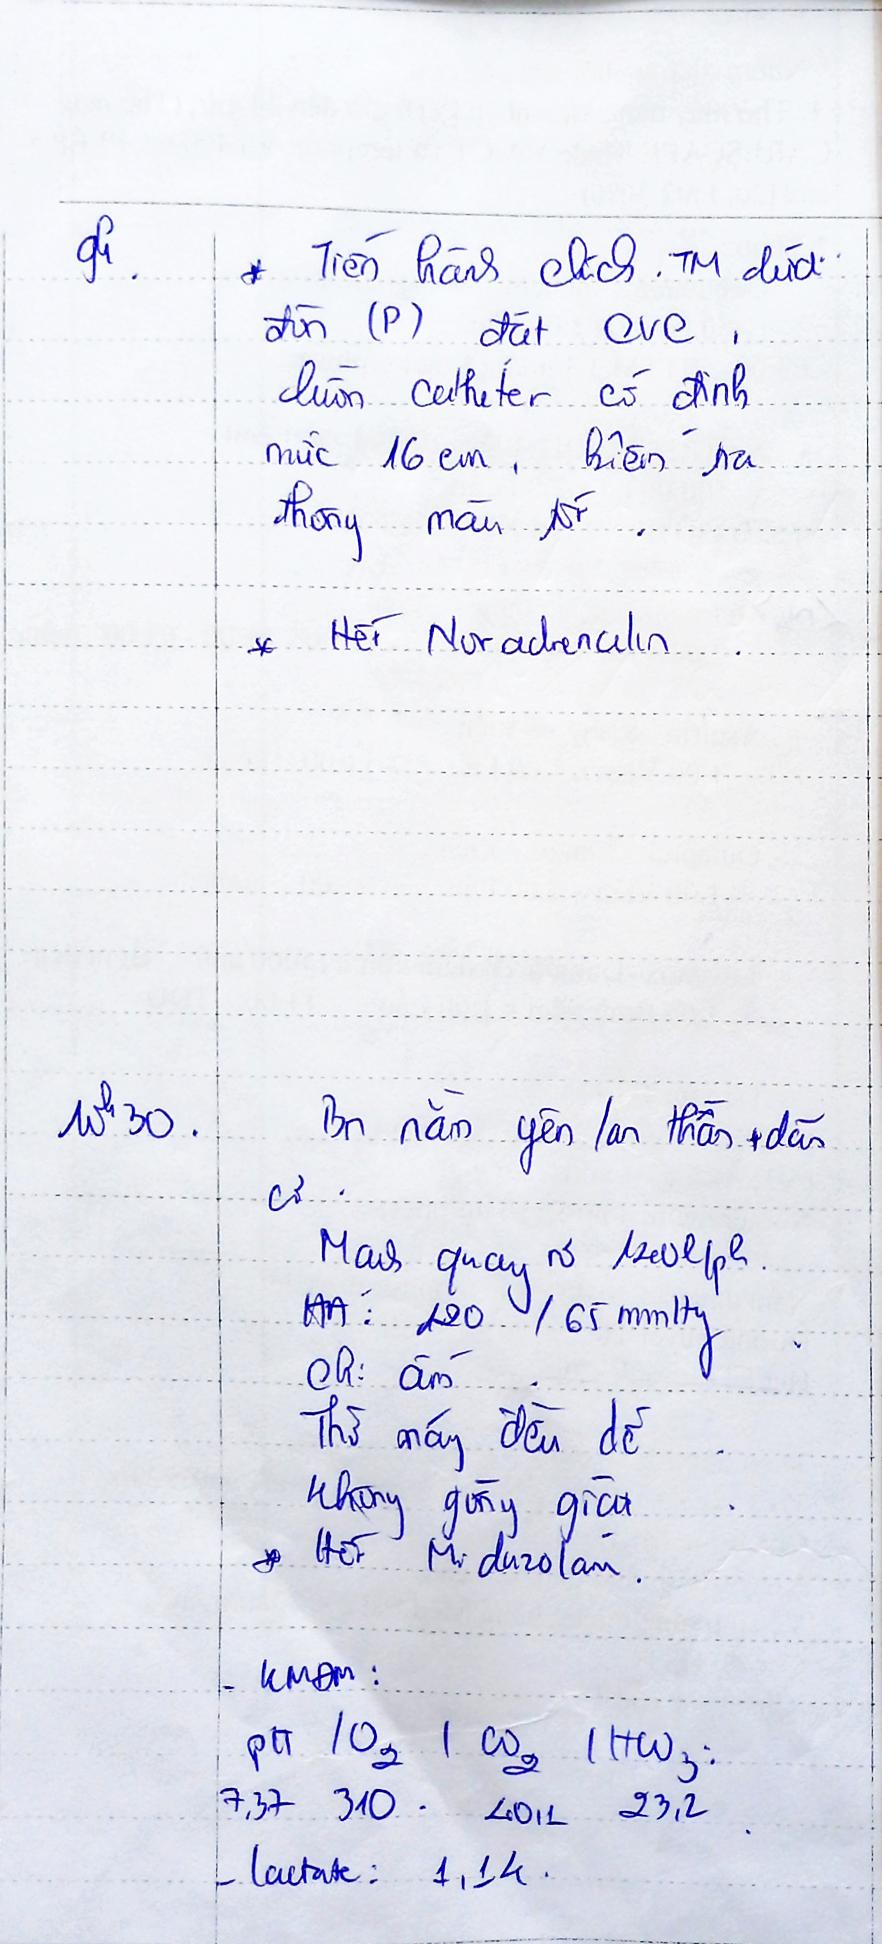 9h.
* Tiến hành chích TM dưới
đòn (P) đặt CVC,
luồn catheter cố định
mức 16 cm, kiểm tra
thông máu tốt.
* Hết Noradrenalin.
10h30. Bn nằm yên / an thần + dãn
cơ.
Mạch quay rõ 120l/ph.
HA: 120 / 65 mmHg
Chi: ấm.
Thở máy đều dễ.
Không gồng giật.
* Hết Midazolam.
- KMĐM:
pH / O2 / CO2 / HCO3:
7,37 310. 40,1 23,2.
- lactate: 1,14.